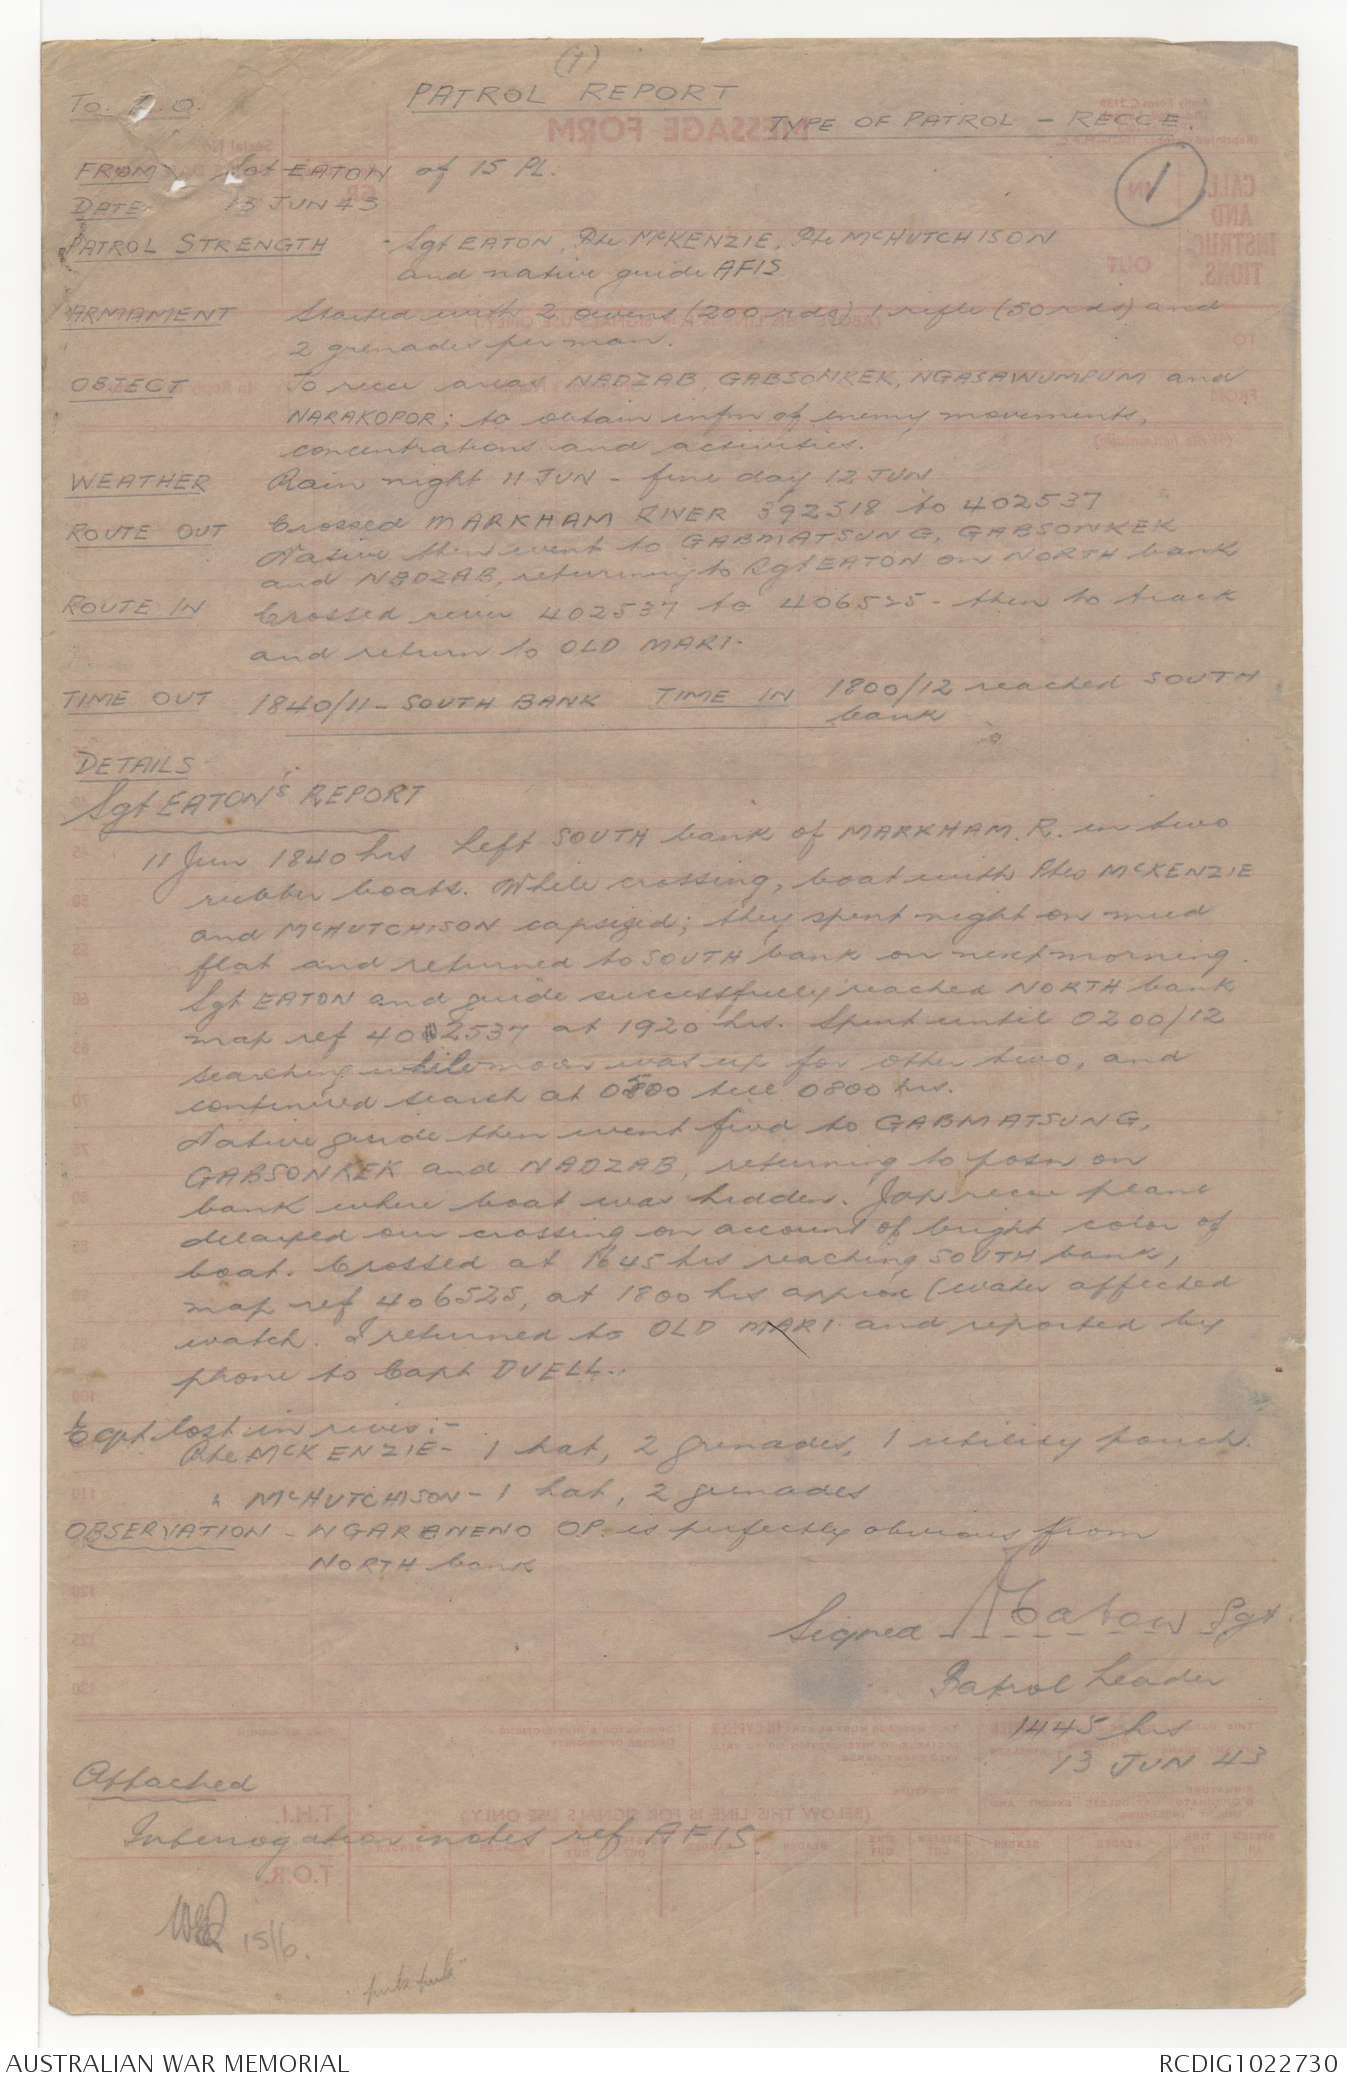 (1)
PATROL REPORT
To. I.O.
TYPE OF PATROL - RECCE.
1
FROM Sgt EATON of 15 PL.
DATE. 13 JUN 43
PATROL STRENGTH - Sgt EATON, Pte McKENZIE, Pte McHUTCHISON
and native guide AFIS
ARMAMENT Started with 2 Owens (200 rds) 1 rifle (50 rds) and
2 grenades per man.
OBJECT To recce areas NADZAB, GABSONKEK, NGASAWUMPUM and
NARAKOPOR; to obtain infm of enemy movements,
concentrations and activities.
WEATHER Rain night 11 JUN - fine day 12 JUN
ROUTE OUT Crossed MARKHAM RIVER 392518 to 402537
Native then went to GABMATSUNG, GABSONKEK
and NADZAB, returning to Sgt EATON on NORTH bank
ROUTE IN Crossed river 402537 to 406525 - then to track
and return to OLD MARI.
TIME OUT 1840/11 - SOUTH BANK TIME IN 1800/12 reached SOUTH
bank
DETAILS
Sgt EATON'S REPORT
11 Jun 1840 hrs Left SOUTH bank of MARKHAM R. in two
rubber boats. While crossing, boat with Ptes McKENZIE
and McHUTCHISON capsized; they spent night on mud
flat and returned to SOUTH bank on next morning.
Sgt EATON and guide successfully reached NORTH bank
map ref 402537 at 1920 hrs. Spent until 0200/12
searching while moon was up for other two, and
continued search at 0500 till 0800 hrs.
Native guide then went fwd to GABMATSUNG,
GABSONKEK and NADZAB, returning to posn on
bank where boat was hidden. Jap recce plane
delayed our crossing on account of bright color of
boat. Crossed at 1645 hrs reaching SOUTH bank,
map ref 406525, at 1800 hrs approx (water affected
watch. I returned to OLD MARI and reported by
phone to Capt DUELL..
Eqpt lost in river:-
Pte McKENZIE - 1 hat, 2 grenades, 1 utility pouch.
" McHUTCHISON - 1 hat, 2 grenades
OBSERVATION - NGARANENO OP. is perfectly obvious from
NORTH bank
Signed Eaton Sgt.
Patrol Leader
1445 hrs
13 JUN 43
Attached
Interrogation notes ref AFIS.
15/6.
AUSTRALIAN WAR MEMORIAL
RCDIG1022730